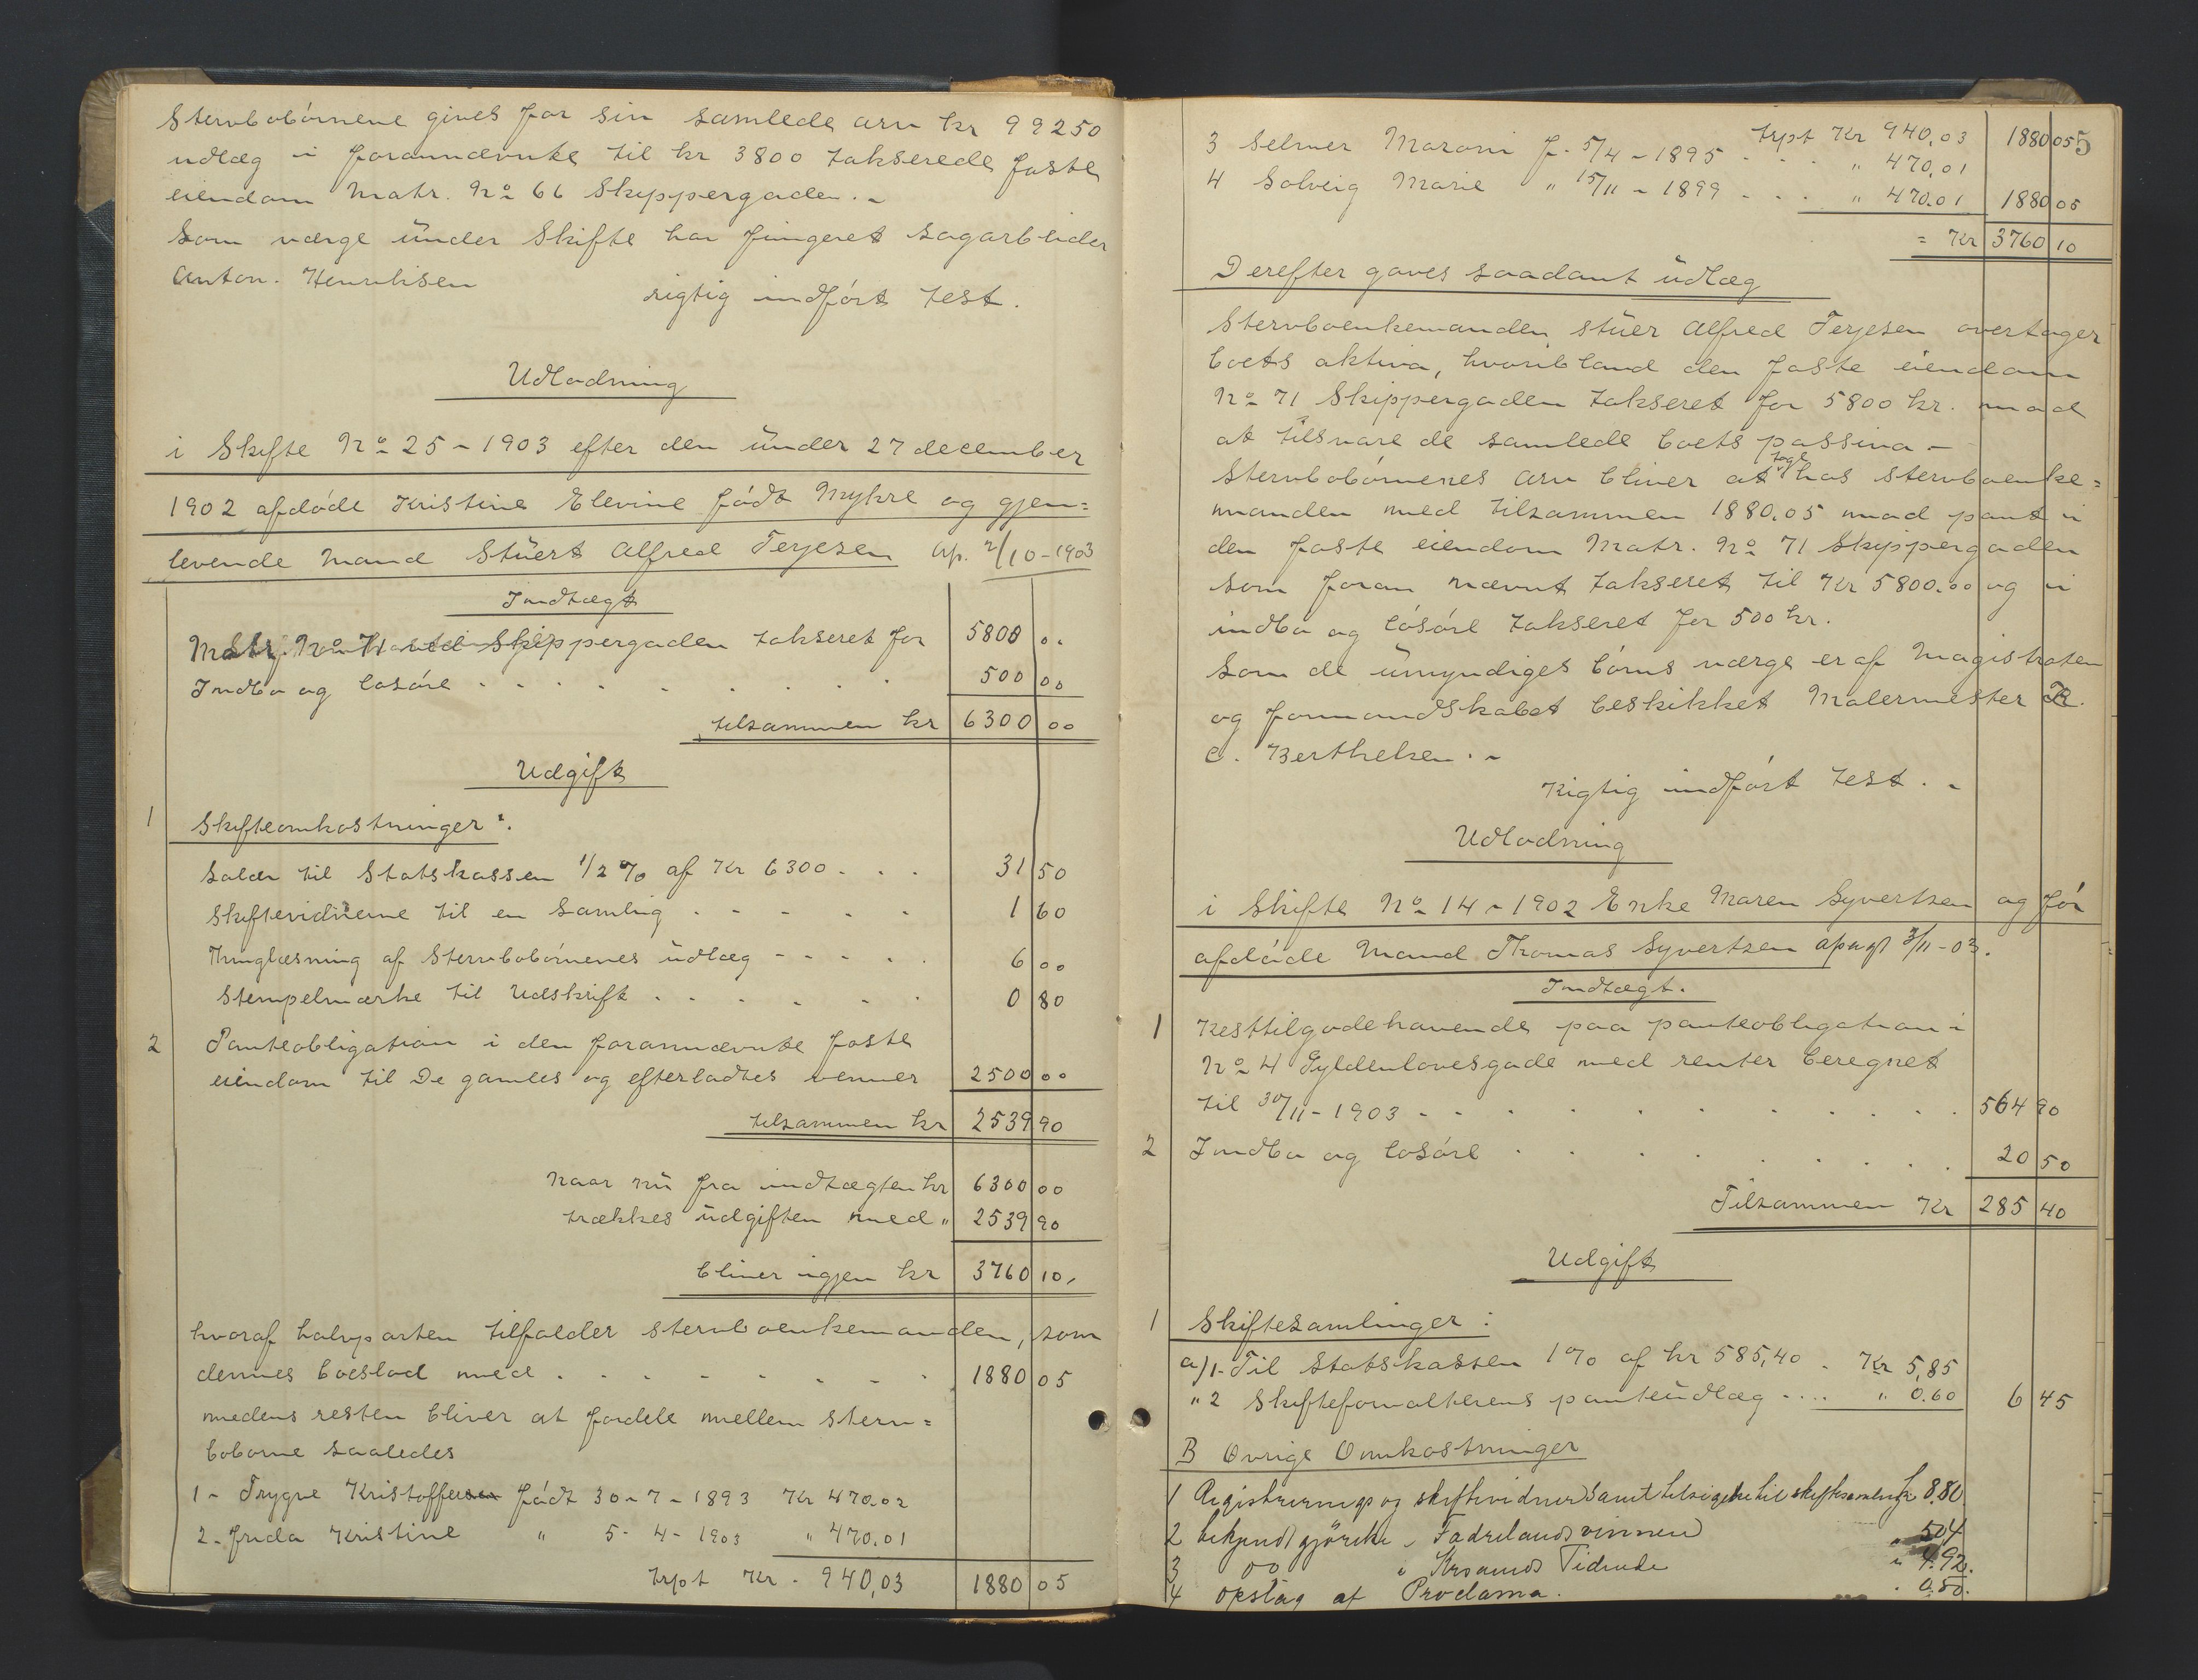 Stervbobörnene gives for sin samlede arv kr 99250
udlæg i forannævnte til kr 3800 takserede faste
eiendom Matr. No 66 Skippergaden. -
Som værge under Skifte har fungeret sagarbeider
Anton. Henriksen
rigtig indfört test.
Udlodning
i Skifte No 25 - 1903 efter den under 27 december
1902 afdöde Kristine Elevine född Mykre og gjen=
levende Mand Stuert Alfred Terjesen ap. 2/10 - 1903
Indtægt
Matr. No 71 Skippergaden takseret for 5800 00
Indbo og lösöre . . . . . . . . 500 00
tilsammen kr 6300 00
Udgift
1 Skifteomkostninger:
Salær til Statskassen 1/2 % af Kr 6300 . . . 31 50
Skiftevidnerne til en Samling . - - . . 1 60
Thinglæsning af Stervbobörnenes udlæg - - - . . 6 00
Stempelmærke til Udskrift . . . . . . 0 80
2 Panteobligation i den forannævnte faste
eiendom til De gamles og efterladtes venner 2500 00
tilsammen kr 2539 90
Naar nu fra indtægten kr 6300 00
trækkes udgiften med " 2539 90
bliver igjen kr 3760 10,
hvoraf halvparten tilfalder stervboenkemanden, som
dennes boeslod med . . . - - - - . 1880 05
medens resten bliver at fordele mellem Sterv=
boborne saaledes
1 - Trygve Kristoffersen födt 30 - 7 - 1893 Kr 470.02
2. Frida Kristine " 5 - 4 - 1903 " 470.01
trpt Kr - 940,03 1880 05
5
trpt Kr 940,03 1880 05
3 Selmer Maroni f. 5/4 - 1895 . . . " 470,01
4 Solveig Marie " 15/11 - 1899 - . . " 470.01 1880 05
= Kr 3760 10
Derefter gaves saadant udlæg
Stervboenkemanden stuer Alfred Terjesen overtager
boets aktiva, hvoribland den faste eiendom
No 71 Skippergaden takseret for 5800 kr. mod
at tilsvare de samlede boets passiva -
Stervbobörnenes arv bliver at tage hos stervboenke=
manden med tilsammen 1880.05 mod pant i
den faste eiendom Matr. No 71 Skippergaden
som foran nævnt takseret til Kr 5800.00 og i
indbo og lösöre takseret for 500 kr.
Som de umyndiges börns værge er af Magistraten
og formandskabet beskikket Malermester
C. Berthelsen. -
Rigtig indfört test. -
Udlodning
i Skifte No 14 - 1902 Enke Maren Syvertsen og för
afdöde Mand Thomas Syvertsen 3/11 - 03.
Indtægt.
1 Resttilgodehavende paa panteobligation i
No 4 Gyldenlovesgade med renter beregnet
til 30/11 - 1903 - - . . . . . . . . 564 90
2 Indbo og lösöre . . . . . . . . 20 50
Tilsammen Kr 285 40
Udgift
1 Skiftesamlinger :
a/1 - Til Statskassen 1 % af kr 585,40 . Kr 5,85
" 2 Skifteforvalterens panteudlæg . . . . " 0.60 6 45
B Ovrige Omkostninger
1 Registrerings og skiftevidner samt tilsigelse til skiftesamling kr 8.80
2 bekjendtgjörelse i Fædrelandsvennen " 504
3 do i Krsands Tidende " 4.92.
4 opslag af Proclama. . 0.50.